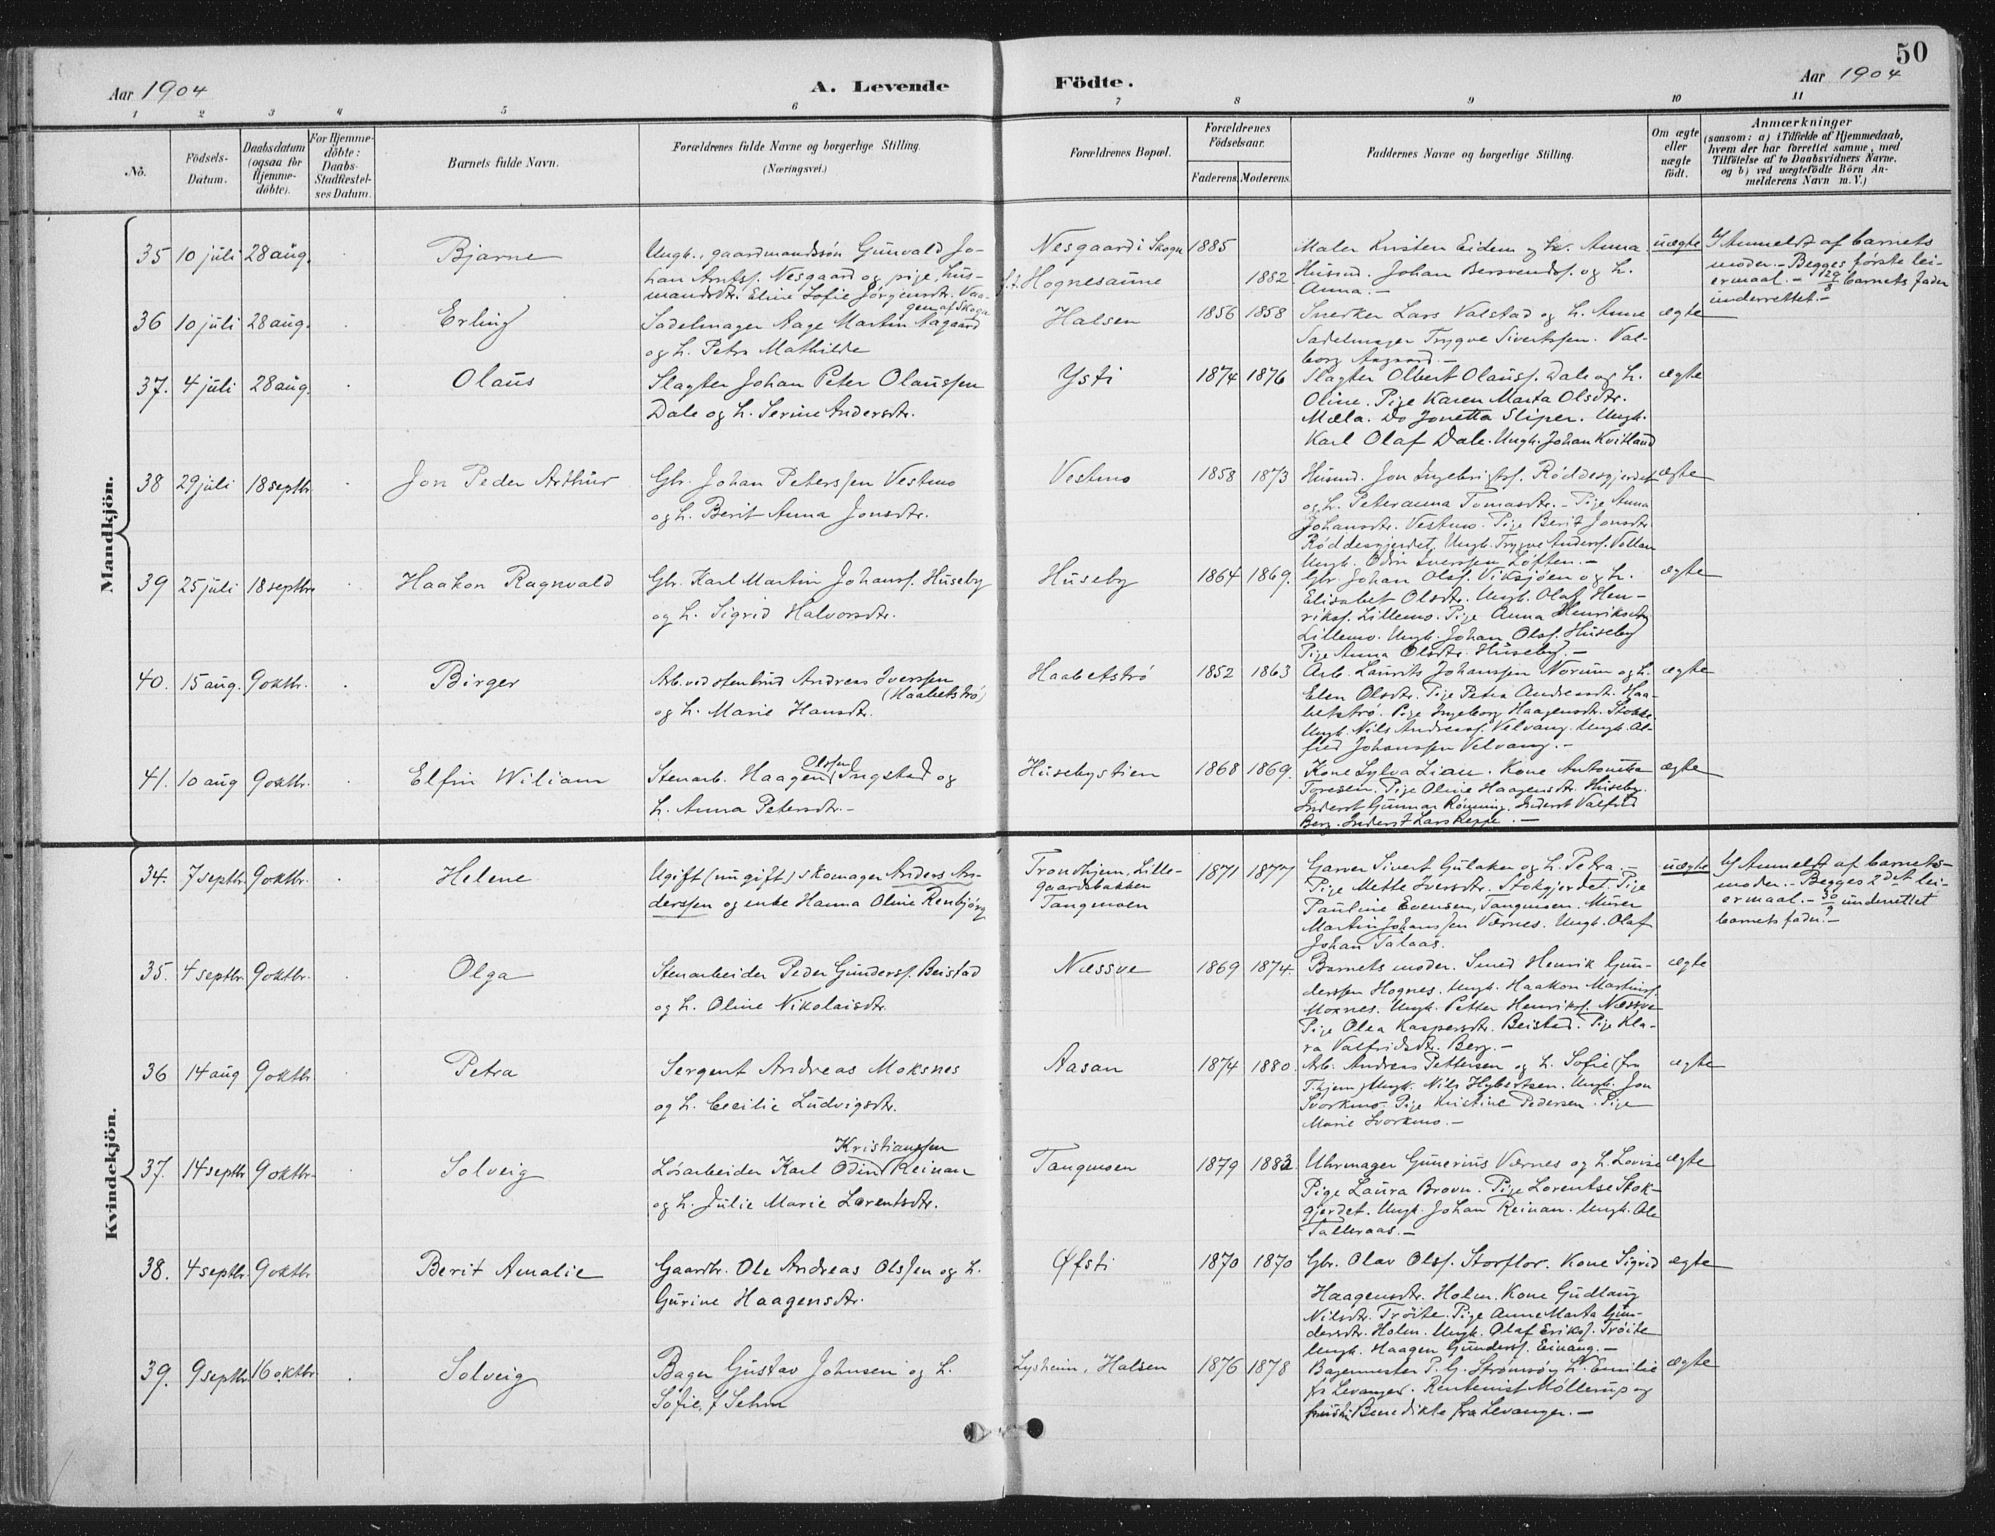 50
Aar 1904
A. Levende Födte.
Aar 1904
1 2 3 4 5 6 7 8 9 10 11
No.
Födsels-Datum.
Daabsdatum (ogsaa för Hjemme-döbte).
For Hjemme-döbte: Daabs-Stadfæstel-ses Datum.
Barnets fulde Navn.
Forældrenes fulde Navne og borgerlige Stilling.
(Næringsvei.)
Forældrenes Bopæl.
Forældrenes Födselsaar.
Faderens. Moderens.
Faddernes Navne og borgerlige Stilling.
Om ægte eller uægte födt.
Anmærkninger
(saasom: a) i Tilfælde af Hjemmedaab,
hvem der har forrettet samme, med
Tilföielse af to Daabsvidners Navne.
og b) ved uægtefödte Börn An-
melderens Navn m. V.)
Mandkjön.
35 10 juli 28 aug. Bjarne
Ungk., gaardmandssøn Gunvald Jo-
han Arntsf. Nesgaard og pige, hus-
mandsdtr. Eline Sofie Jørgensdtr.
gen af Skogn
Nesgaard i Skogn
f.t. Hognesaune
1885 1882
Maler Kristen Eidem og h. Anna.
Husmd. Johan Bersvendsf. og h.
Anna. —
uægte
Anmeldt af barnets
moder. — Begges første lei-
ermaal. — 29/8 barnets fader
underrettet. —
36 10 juli 28 aug. Erling
Sadelmager Aage Martin Aagaard
og h. Petra Mathilde
Halsen
1856 1858
Snerker Lars Valstad og h. Anne
Sadelmager Trygve Sivertssen. Val-
borg Aagaard. —
ægte
37. 4 juli 28 aug. Olaus
Slagter Johan Peter Olaussen
Dale og h. Serine Andersdtr.
Ysti
1874 1876
Slagter Olbert Olausf. Dale og h.
Oline. Pige Karen Marta Olsdtr.
Mæla. Do Jonetta Sliper. Ungk.
Karl Olaf Dale. Ungk. Johan Kvitland
ægte
38 29 juli 18 septbr. Jon Peder Arthur
Gbr. Johan Peterssen Vestmo
og h. Berit Anna Jonsdtr.
Vestmo
1858 1873
Husmd. Jon Ingebrigtsf. Røddesgjerdet
og h. Peteranna Tomasdtr. — Pige Anna
Johansdtr. Vestmo. Pige Berit Jonsdtr.
Røddesgjerdet. Ungk. Trygve Andersf. Vollan
Ungk. Odin Iverssen Løften. —
ægte
39 25 juli 18 septbr. Haakon Ragnvald
Gbr. Karl Martin Johansf. Huseby
og h. Sigrid Halvorsdtr.
Huseby
1864 1869.
Gbr. Johan Olsf. Viksjøen og h.
Elisabet Olsdtr. Ungk. Olaf Hen-
riksf. Lillemo. Pige Anna Henriksdtr
Lillemo. Ungk. Johan Olsf. Huseby
Pige Anna Olsdtr. Huseby. —
ægte
40. 15 aug. 9 oktbr. Birger
Arb. ved stenbrud Andreas Iverssen
(Haabetstrø)
og h. Marie Hansdtr.
Haabetstrø
1852 1863
Arb. Laurits Johanssen Norum og h.
Elen Olsdtr. Pige Petra Andreasdtr. Haa-
betstrø. Pige Ingeborg Haagensdtr. Stokke.
Ungk. Nils Andreasf. Velvang. Ungk. Al-
fred Johanssen Velvang. —
ægte
41. 10 aug 9 oktbr. Elfin Wiliam
Olssen
Stenarb. Haagen Ingstad og
h. Anna Petersdtr. —
Husebystien
1868 1869.
Kone Sylva Lian. Kone Antonette
Toresen. Pige Oline Haagensdtr. Huseby.
Inderst Gunnar Rønning. Inderst Valfrid
Berg. Inderst Lars Reppe. —
ægte
Kvindekjön.
34. 7 septbr 9 oktbr. Helene
Ugift (ungift) skomager Anders An-
derssen og enke Hanna Oline Renbjørg
Trondhjem, Lille-
gaardsbakken
Tangmoen
1871 1877
Garver Sivert Gulaker og h. Petra. —
Pige Mette Iversdtr. Stokgjerdet. Pige
Pauline Evensen, Tangmoen. Murer
Martin Johanssen Værnes. Ungk. Olaf
Johan Talaas.
uægte
Anmeldt af barnets-
moder. — Begges 2det lei-
ermaal. — 30/9 underrettet
barnets fader. —
35. 4 septbr. 9 oktbr. Olga
Stenarbeider Peder Gundersf. Beistad
og h. Oline Nikolaisdtr.
Næssve
1869 1874.
Barnets moder. Smed Henrik Gun-
derssen Hognes. Ungk. Haakon Martinsf.
Moxnes. Ungk. Petter Henriksf. Næssve
Pige Olea Kaspersdtr. Beistad. Pige Kla-
ra Valfridsdtr. Berg. —
ægte
36 14 aug 9 oktbr Petra
Sergent Andreas Moksnes
og h. Cecilie Ludvigsdtr.
Aasan
1874 1880
Arb. Andreas Pettersen og h. Sofie (fra
T.hjem) Ungk. Nils Hybertsen. Ungk. Jon
Svorkmo. Pige Kristine Pedersen. Pige
Marie Svorkmo. —
ægte
37. 14 septbr 9 oktbr. Solveig
Kristianssen
Løsarbeider Karl Odin Reinan
og h. Julie Marie Lorentsdtr.
Tangmoen
1879 1882
Uhrmager Gunerius Værnes og h. Lovise
Pige Laura Brovn. Pige Lorentse Stok-
gjerdet. Ungk. Johan Reinan. Ungk. Ole
Talleraas. —
ægte
38. 4 septbr. 9 oktbr Berit Amalie
Gaardbr. Ole Andreas Olssen og h.
Gurine Haagensdtr.
Øfsti
1870 1870
Gbr. Olav Olsf. Storflor. Kone Sigrid
Haagensdtr. Holm. Kone Gudlaug
Nilsdtr. Trøite. Pige Anne Marta Gun-
dersdtr. Holm. Ungk. Olaf Eriksf. Trøite
Ungk. Haagen Gundersf. Einang. —
ægte
39. 9 septbr 16 oktbr Solveig
Bager Gustav Johnsen og h.
Sofie, f.
Lysheim, Halsen
1876 1878
Bagermester P. G. Strømsøy h. Emilie
fr Levanger. Rentenist Møllerup og
Benedikte fra Levanger. —
ægte